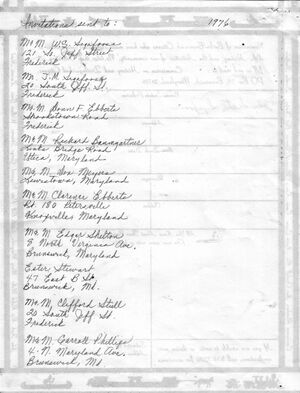 Invitations sent to: 1976
Mr. M. W.S. Sigafoose
21 So. Jeff Street
Frederick
Mr. J.M. Sigafoose
20 South Jeff St.
Frederick
Mr. M. Donn F. Ebberts
Shookstown Road
Frederick
Mr. M. Richard Baumgartner
Links Bridge Road
Utica, Maryland
Mr. M. Don Meyers
Lewistown, Maryland
Mr. M. Clarence Ebberts
Rt. 180 Petersville
Knoxville, Maryland
Mr. M. Edgar Shelton
8 North Virginia Ave.
Brunswick, Maryland
Ester Stewart
47 East B St.
Brunswick, Md.
Mr. M. Clifford Stull
20 South Jeff St.
Frederick
Mr. M. Carroll Phillips
4 N. Maryland Ave.
Brunswick, Md.